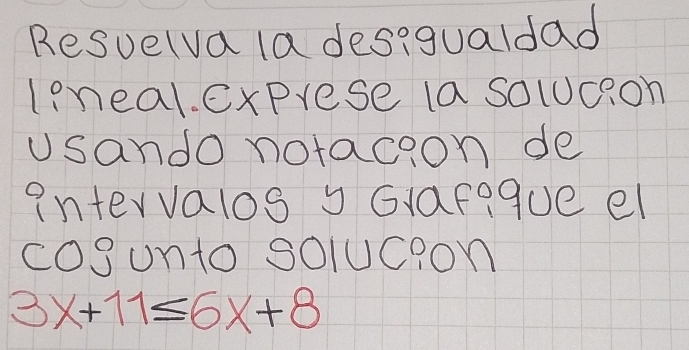 Resuelva la desigualdad
lineal. Exprese la solucion
usando notacion de
intervalos y Grafique el
cojunto solucion
3x+11≤6x+8